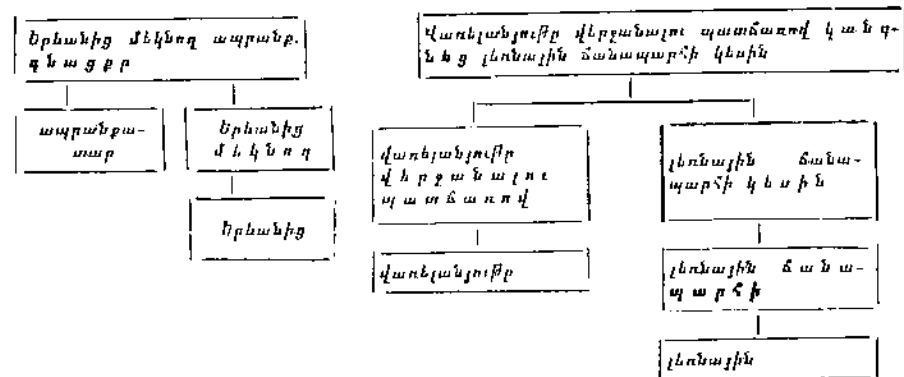 Երևանից մեկնող ապրանք.
գնացքը
ապրանքա-
տար
Երևանից
մեկնող
Երևանից
Վառելանյութը վերջանալու պատճառով կանգ-
նեց լեռնային ճանապարհի կեսին
վառելանյութը
վերջանալու
պատճառով
վառելանյութը
լեռնային ճանա-
պարհի կեսին
լեռնային ճանա-
պարհի
լեռնային